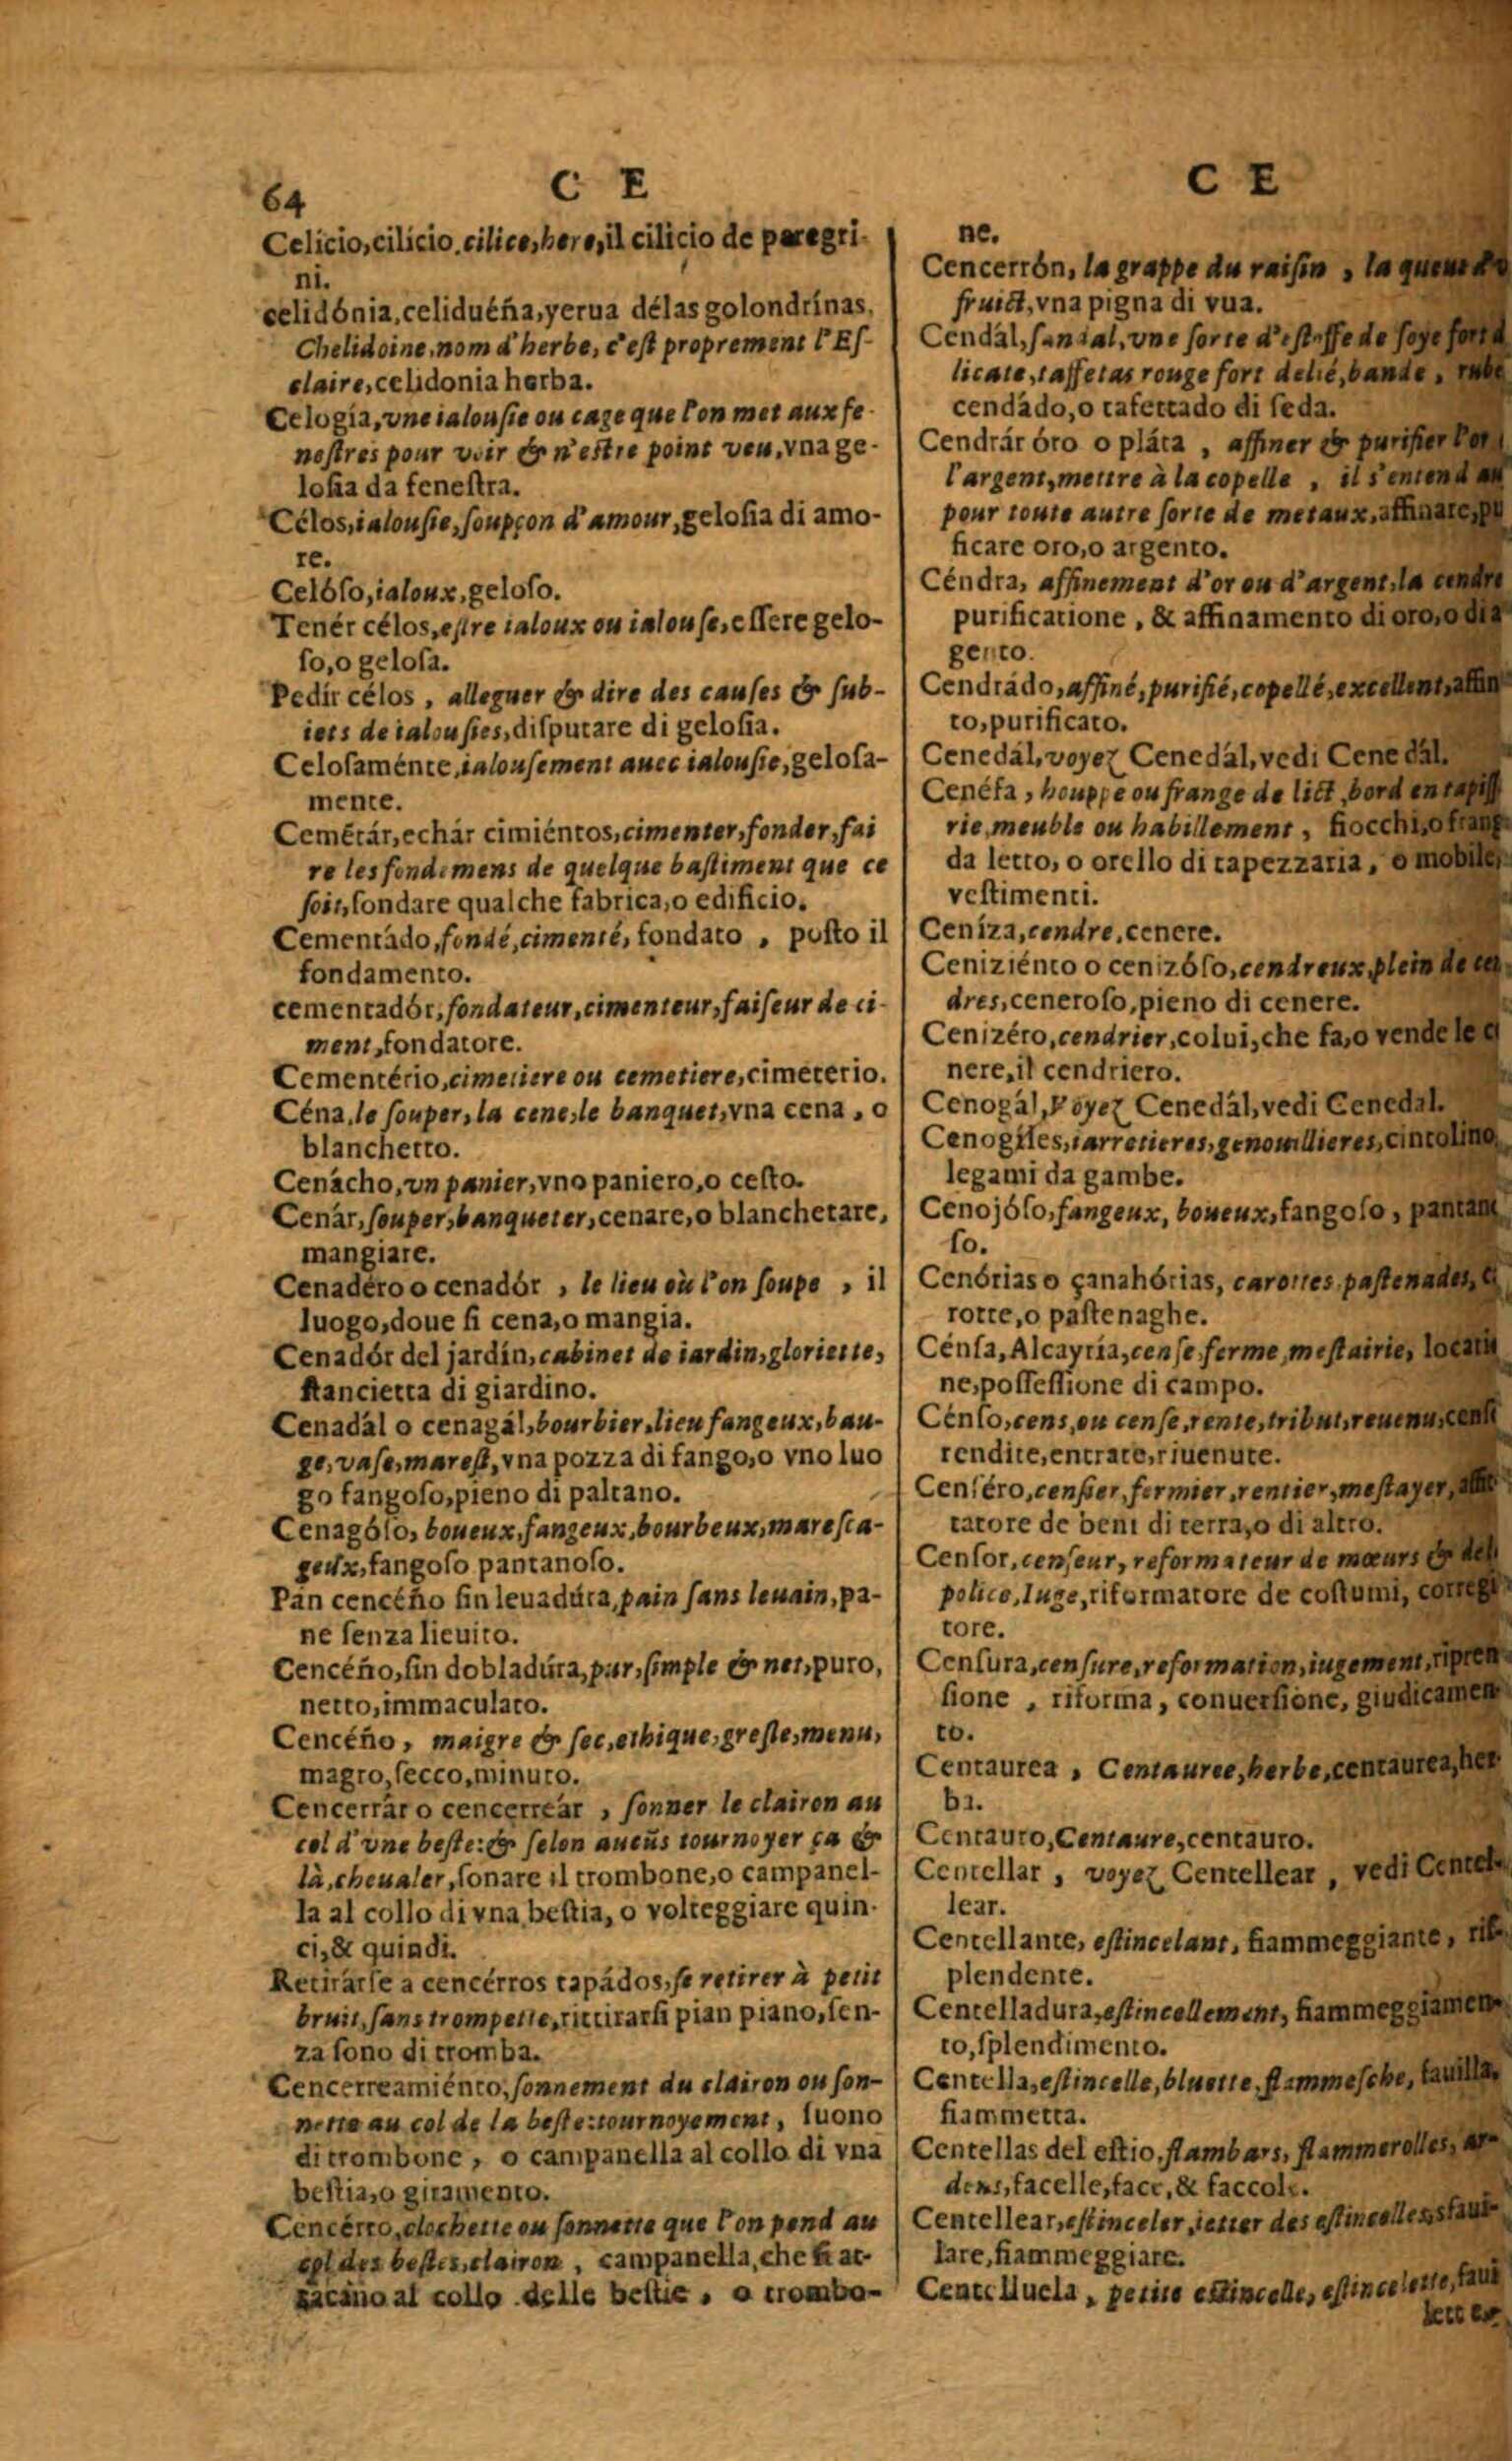 64
C E
Celicio,cilicio,cilice,here,il cilicio de paregri-
ni.
celidónia,celiduéña,yerua délas golondrínas,
Chelidoine,nom d'herbe, c'eſt proprement l'Eſ-
claire,celidonia herba.
Celogía,vne ialouſie ou cage que l'on met aux fe-
neſtres pour voir & n'eſtre point veu,vna ge-
loſia da feneſtra.
Célos,ialouſie,ſoupçon d'amour,geloſia di amo-
re.
Celóſo,ialoux,geloſo.
Tenér célos,eſtre ialoux ou ialouſe,eſſere gelo-
ſo,o geloſa.
Pedír célos, alleguer & dire des cauſes & ſub-
iets de ialouſies,diſputare di geloſia.
Celoſaménte,ialouſement auec ialouſie,geloſa-
mente.
Cemẽtár,echár cimiéntos,cimenter,fonder,fai
re les fondemens de quelque baſtiment que ce
ſoit,fondare qualche fabrica,o edificio.
Cementádo,fondé,cimenté, fondato , poſto il
fondamento.
cementadór,fondateur,cimenteur,faiſeur de ci-
ment,fondatore.
Cementério,cimetiere ou cemetiere,cimeterio.
Céna,le ſouper,la cene,le banquet,vna cena , o
blanchetto.
Cenácho,vn panier,vno paniero,o ceſto.
Cenár,ſouper,banqueter,cenare,o blanchetare,
mangiare.
Cenadéro o cenadór , le lieu où l'on ſoupe , il
luogo,doue ſi cena,o mangia.
Cenadór del jardín,cabinet de iardin,gloriette,
ſtancietta di giardino.
Cenadál o cenagál,bourbier,lieu fangeux,bau-
ge,vaſe,mareſt,vna pozza di fango,o vno luo
go fangoſo,pieno di paltano.
Cenagóſo, boueux,fangeux,bourbeux,mareſca-
geux,fangoſo pantanoſo.
Pán cencéño ſin leuadúra,pain ſans leuain,pa-
ne ſenza lieuito.
Cencéño,ſin dobladúra,pur,ſimple & net,puro,
netto,immaculato.
Cencéño, maigre & ſec,ethique,greſle,menu,
magro,ſecco,minuto.
Cencerrár o cencerreár , ſonner le clairon au
col d'vne beſte:& ſelon aucũs tournoyer ça &
là,cheualer,ſonare il trombone,o campanel-
la al collo di vna beſtia, o volteggiare quin-
ci,& quindi.
Retirárſe a cencérros tapádos,ſe retirer à petit
bruit,ſans trompette,rittirarſi pian piano,ſen-
za ſono di tromba.
Cencerreamiénto,ſonnement du clairon ou ſon-
nette au col de la beſte:tournoyement, ſuono
di trombone , o campanella al collo di vna
beſtia,o giramento.
Cencérro,clochette ou ſonnette que l'on pend au
col des beſtes,clairon , campanella,che ſi at-
tacano al collo delle beſtie , o trombo-
C E
ne.
Cencerrón, la grappe du raiſin , la queue du
fruict,vna pigna di vua.
Cendál,ſandal,vne ſorte d'eſtoffe de ſoye fort d
licate,taffetas rouge fort delié,bande , rube
cendádo,o tafettado di ſeda.
Cendrár óro o pláta , affiner & purifier l'or
l'argent,mettre à la copelle , il s'entend au
pour toute autre ſorte de metaux,affinare,pu
ficare oro,o argento.
Céndra, affinement d'or ou d'argent,la cendre
purificatione , & affinamento di oro,o di a
gento.
Cendrádo,affiné,purifié,copellé,excellent,affin
to,purificato.
Cenedál,voyez Cenedál,vedi Cenedál.
Cenéfa , houppe ou frange de lict,bord en tapiſſ
rie,meuble ou habillement , fiocchi,o frang
da letto, o orello di tapezzaria , o mobile,
veſtimenti.
Ceníza,cendre,cenere.
Ceniziénto o cenizóſo,cendreux,plein de cen
dres,ceneroſo,pieno di cenere.
Cenizéro,cendrier,colui,che fa,o vende le ci
nere,il cendriero.
Cenogál,Voyez Cenedál,vedi Cenedal.
Cenogiles,iarretieres,genouillieres,cintolino,
legami da gambe.
Cenojóſo,fangeux, boueux,fangoſo , pantano
ſo.
Cenórias o çanahórias, carottes,paſtenades, c
rotte,o paſtenaghe.
Cénſa,Alcayría,cenſe,ferme,meſtairie, locati
ne,poſſeſſione di campo.
Cénſo,cens,ou cenſe,rente,tribut,reuenu,cenſi
rendite,entrate,riuenute.
Cenſéro,cenſier,fermier,rentier,meſtayer,affit
tatore de beni di terra,o di altro.
Cenſor,cenſeur, reformateur de mœurs & de l
police,Iuge,riformatore de coſtumi, corregi
tore.
Cenſura,cenſure,reformation,iugement,ripren
ſione , riforma, conuerſione, giudicamen-
to.
Centaurea , Centauree,herbe,centaurea,her-
ba.
Centauro,Centaure,centauro.
Centellar , voyez Centellear , vedi Centel-
lear.
Centellante, eſtincelant, fiammeggiante, riſ-
plendente.
Centelladura,eſtincellement, fiammeggiamen-
to,ſplendimento.
Centella,eſtincelle,bluette,flammeſche, fauilla,
fiammetta.
Centellas del eſtio,flambars, flammerolles, ar-
dens,facelle,face,& faccole.
Centellear,eſtinceler,ietter des eſtincelles,sfaui-
lare,fiammeggiare.
Centelluela , petite eſtincelle, eſtincelette,faui
lette